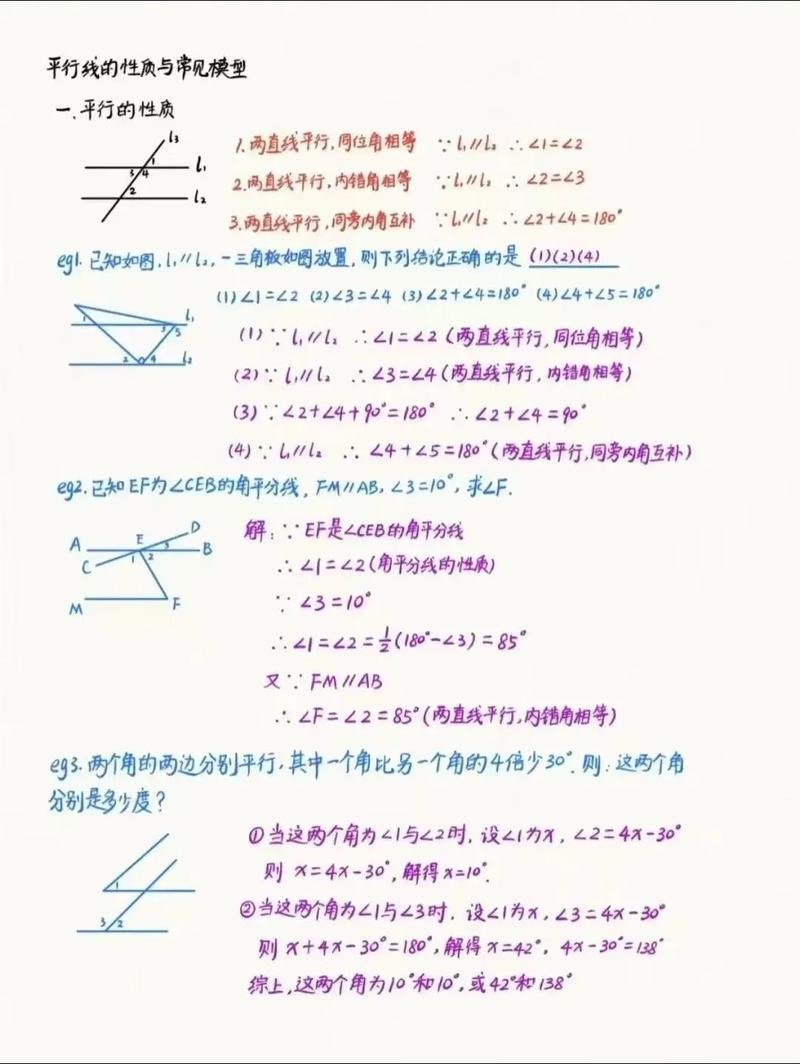 平行线的性质与常见模型
一、平行的性质
l₃
l₁
l₂
1
3 4
2
1.两直线平行,同位角相等 ∵l₁∥l₂ ∴∠1=∠2
2.两直线平行,内错角相等 ∵l₁∥l₂ ∴∠2=∠3
3.两直线平行,同旁内角互补 ∵l₁∥l₂ ∴∠2+∠4=180°
eg1.已知如图,l₁∥l₂,一三角板如图放置,则下列结论正确的是 (1)(2)(4)
(1)∠1=∠2 (2)∠3=∠4 (3)∠2+∠4=180° (4)∠4+∠5=180°
l₁
1 3 5
2 4 l₂
(1)∵l₁∥l₂ ∴∠1=∠2(两直线平行,同位角相等)
(2)∵l₁∥l₂ ∴∠3=∠4(两直线平行,内错角相等)
(3)∵∠2+∠4+90°=180° ∴∠2+∠4=90°
(4)∵l₁∥l₂ ∴∠4+∠5=180°(两直线平行,同旁内角互补)
eg2.已知EF为∠CEB的角平分线,FM∥AB,∠3=10°,求∠F.
A E D
B
C 1 2 3
M F
解:∵EF是∠CEB的角平分线
∴∠1=∠2(角平分线的性质)
∵∠3=10°
∴∠1=∠2=½(180°-∠3)=85°
又∵FM∥AB
∴∠F=∠2=85°(两直线平行,内错角相等)
eg3.两个角的两边分别平行,其中一个角比另一个角的4倍少30°.则:这两个角
分别是多少度?
1
3 2
①当这两个角为∠1与∠2时,设∠1为x,∠2=4x-30°
则 x=4x-30°,解得x=10°.
②当这两个角为∠1与∠3时,设∠1为x,∠3=4x-30°
则x+4x-30°=180°,解得x=42°,4x-30°=138°
综上,这两个角为10°和10°,或42°和138°